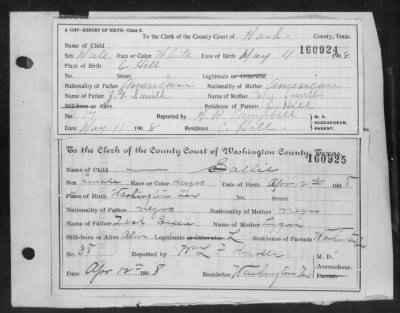 A 1147—REPORT OF BIRTH—Class 5.
To the Clerk of the County Court of Wash. County, Texas.
160924
Name of Child
Sex Male Race or Color White Date of Birth May 11 1908
Place of Birth C. Hill
No. Street Legitimate or Otherwise
Nationality of Father American Nationality of Mother American
Name of Father J. F. Smith Name of Mother Smith
Still-born or Alive Residence of Parents C. Hill
No. 17 Reported by Campbell M. D.
ACCOUCHEUR,
Date May 11 1908 C. Hill PARENT.
To the Clerk of the County Court of Washington County, Texas
160925
Name of Child Sallie
Sex Female Race or Color negro Date of Birth Apr 2nd 1908
Place of Birth Washington Tex No. Street
Nationality of Father negro Nationality of Mother negro
Name of Father Name of Mother
Still-born or Alive Alive Legitimate or Otherwise L Residence of Parents Washington
No. 38 Reported by M. D.
Accoucheur,
Date Apr 12th 1908 Residence Washington Tex Parent.